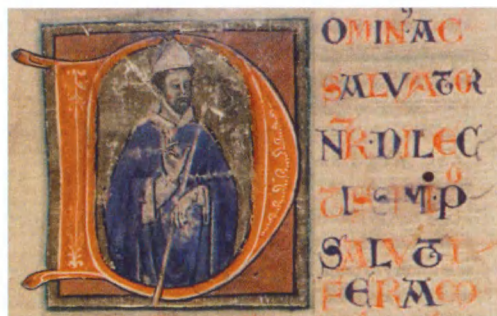 OMIN⁹·AC
SALVATOR
NR̄·DILEC
SALVTI
FERAM